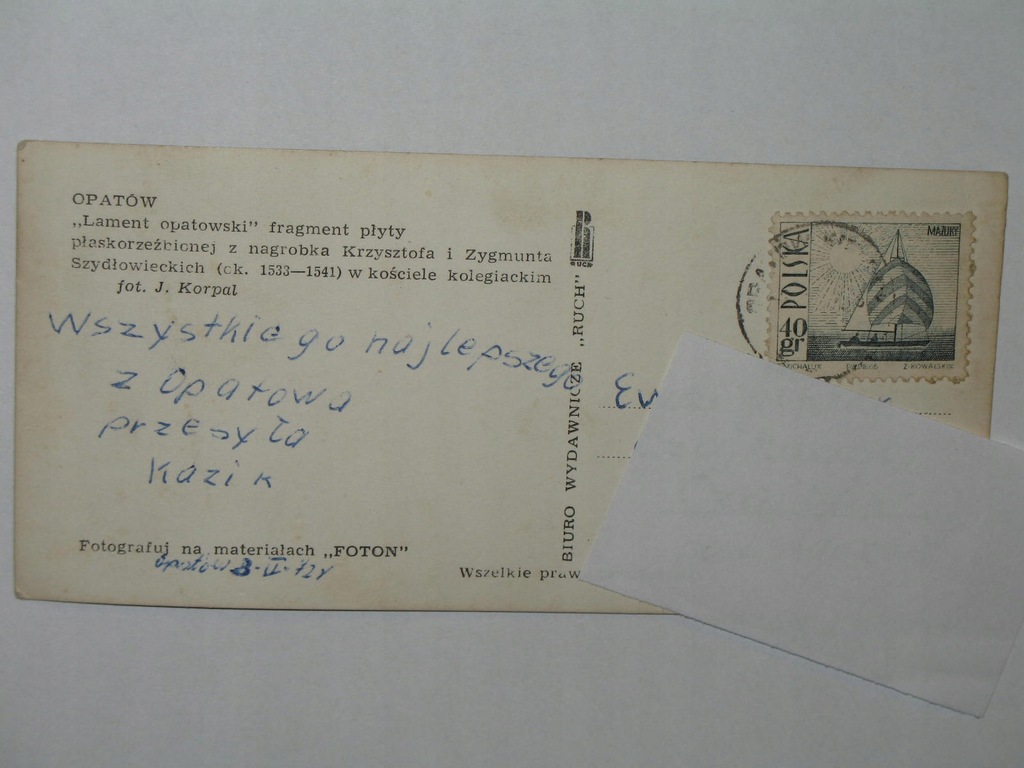 OPATÓW
„Lament opatowski" fragment płyty
płaskorzeźbionej z nagrobka Krzysztofa i Zygmunta
Szydłowieckich (ok. 1533—1541) w kościele kolegiackim
fot. J. Korpal
Wszystkiego najlepszego
z Opatowa
przesyła
Kazik
Fotografuj na materiałach „FOTON"
Opatów
Wszelkie praw
BIURO WYDAWNICZE „RUCH"
RUCH
POLSKA
40
gr
MAZURY
Z. KOWALSKI